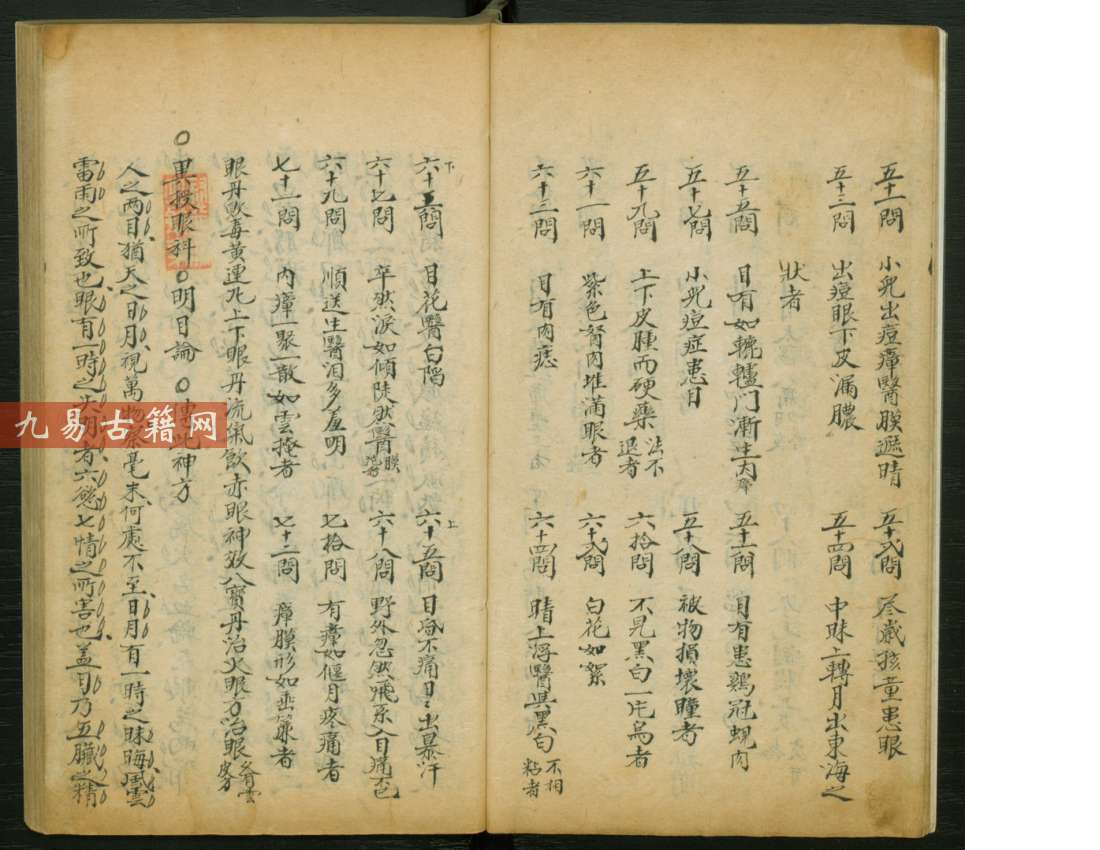 五十一問 小兒出痘瘴醫膜遮睛 五十弍問 叁歲孩童患眼
五十三問 出痘眼下皮漏膿 五十四問 中昧上轉月出東海之
狀者
五十五問 目有如轆轤門漸生肉 五十問 目有患鷄冠蜆肉
五十七問 小兒痘症患目 五十八問 被物損壞瞳者
五十九問 上下皮腫而硬藥法不退者 六拾問 不見黑白一片烏者
六十一問 紫色胬肉堆滿眼者 六十弍問 白花如絮
六十三問 目有肉痣 六十四問 睛上浮醫與黑白不相粘者
下六十五問 目花醫白陷 上六十五問 目昏不痛日日出暴汗
六十七問 卒然淚如傾陡然醫膜 六十八問 野外忽然飛系入目痛
六十九問 順送生醫泪多羞明 七拾問 有瘴如偃月疼痛者
七十一問 內瘴一聚一散如雲掩者 七十二問 瘴膜形如垂簾者
眼丹敗毒黃連 上下眼丹流氣飲赤眼神效八寶丹治火眼方治眼
○異授眼科○明目論○神方
人之两目猶天之日月視萬物察毫末何處不至日月有一時之昧晦風雲
雷雨之所致也眼有一時之失明者六慾七情之所害也盖目乃五臟之精
九易古籍网